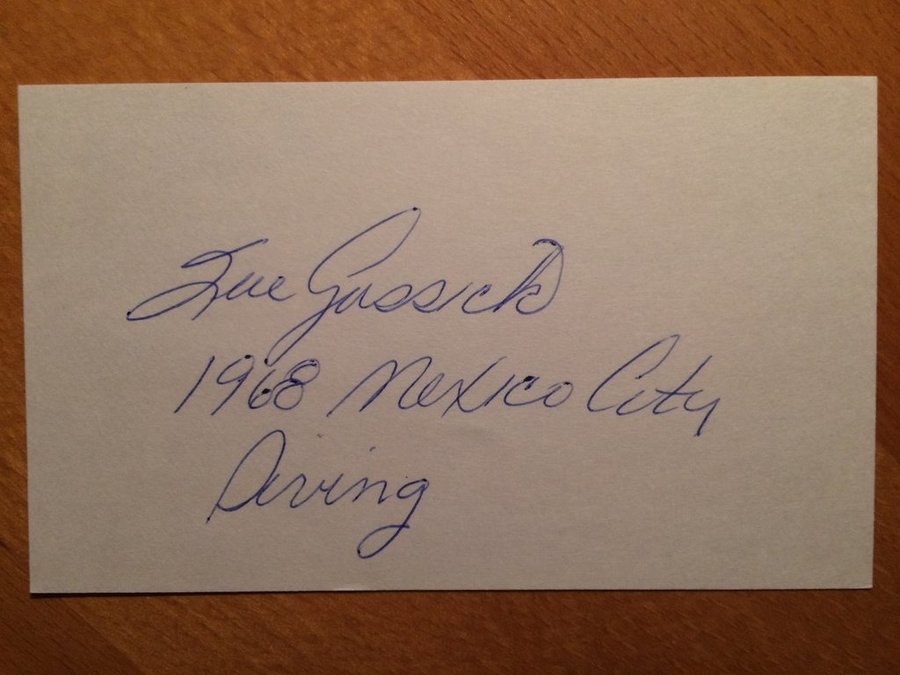 Sue Gossick
1968 Mexico City
Diving